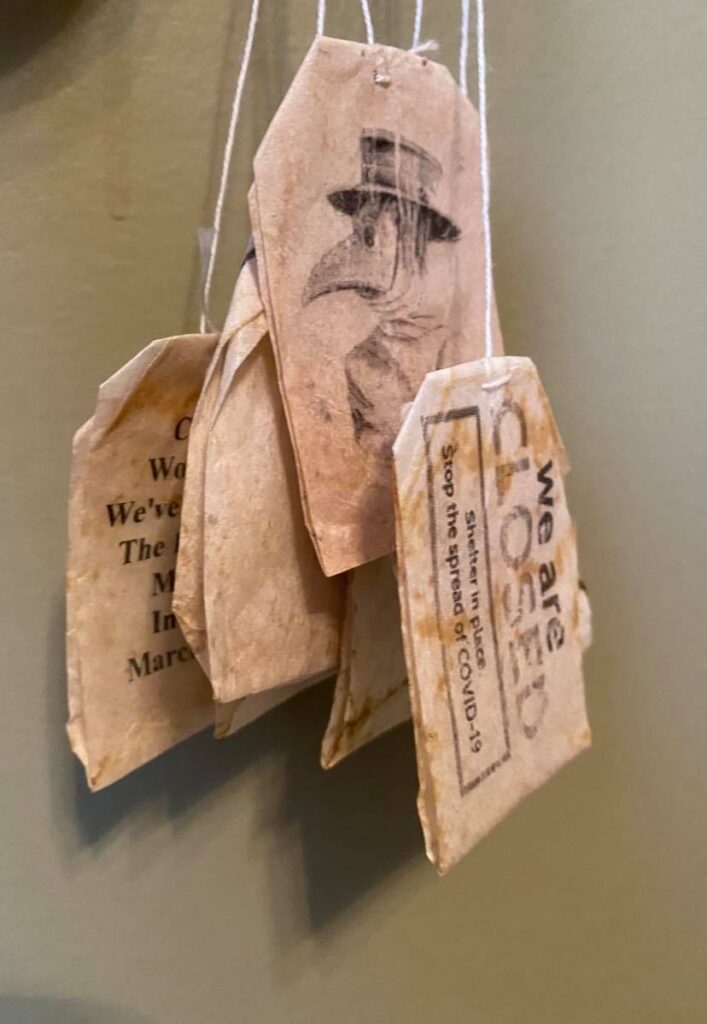 We've
The
In
we are
CLOSED
Shelter in place.
Stop the spread of COVID-19